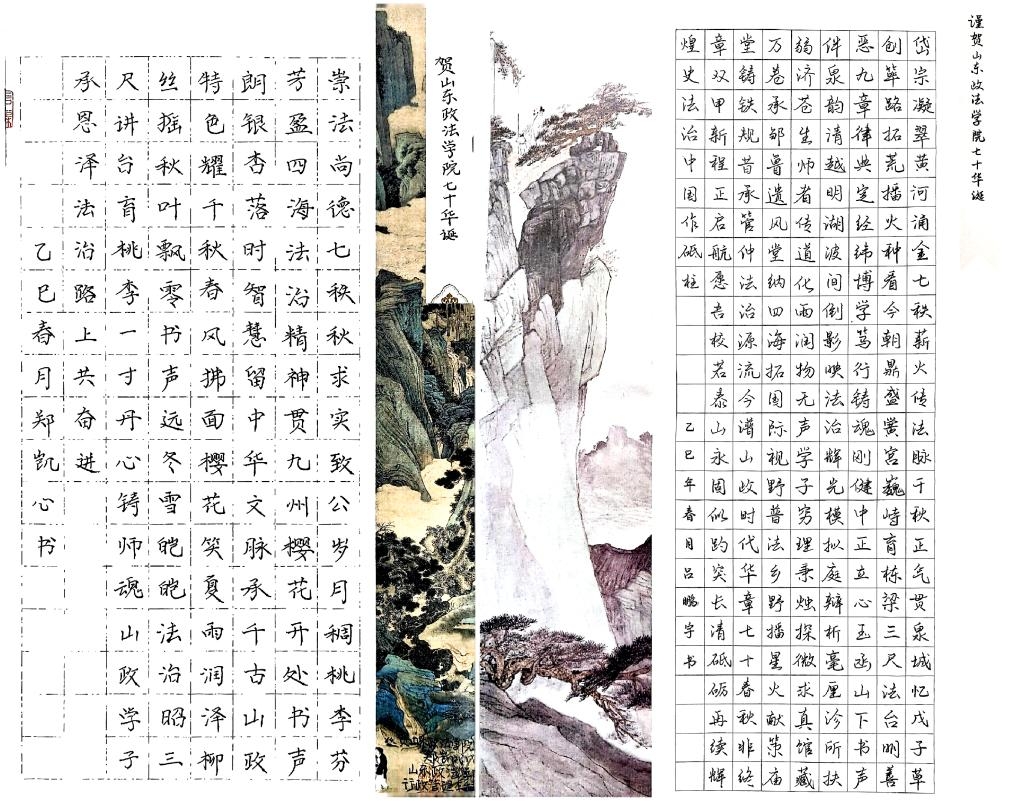 谨贺山东政法学院七十华诞
岱宗凝翠黄河涌金七秩薪火传法脉千秋正气贯泉城忆戊子草
创筚路拓荒播火种看今朝鼎盛黉宫巍峙育栋梁三尺法台明善
恶九章律典定经纬博学笃行铸魂刚健中正立心玉函山下书声
伴泉韵清越明湖波间倒影映法治辉光模拟庭辩析毫厘诊所扶
弱济苍生师者传道化雨润物无声学子穷理秉烛探微求真馆藏
万卷承邹鲁遗风堂纳四海拓国际视野普法乡野播星火献策庙
堂铸铁规昔承管仲法治源流今谱山政时代华章七十春秋非终
章双甲新程正启航愿吉校若泰山永固似趵突长清砥砺再续辉
煌史法治中国作砥柱
乙巳年春月吕鹏宇书
贺山东政法学院七十华诞
崇法尚德七秩秋求实致公岁月稠桃李芬
芳盈四海法治精神贯九州樱花开处书声
朗银杏落时智慧留中华文脉承千古山政
特色耀千秋春风拂面樱花笑夏雨润泽柳
丝摇秋叶飘零书声远冬雪皑皑法治昭三
尺讲台育桃李一寸丹心铸师魂山政学子
承恩泽法治路上共奋进
乙巳春月郑凯心书